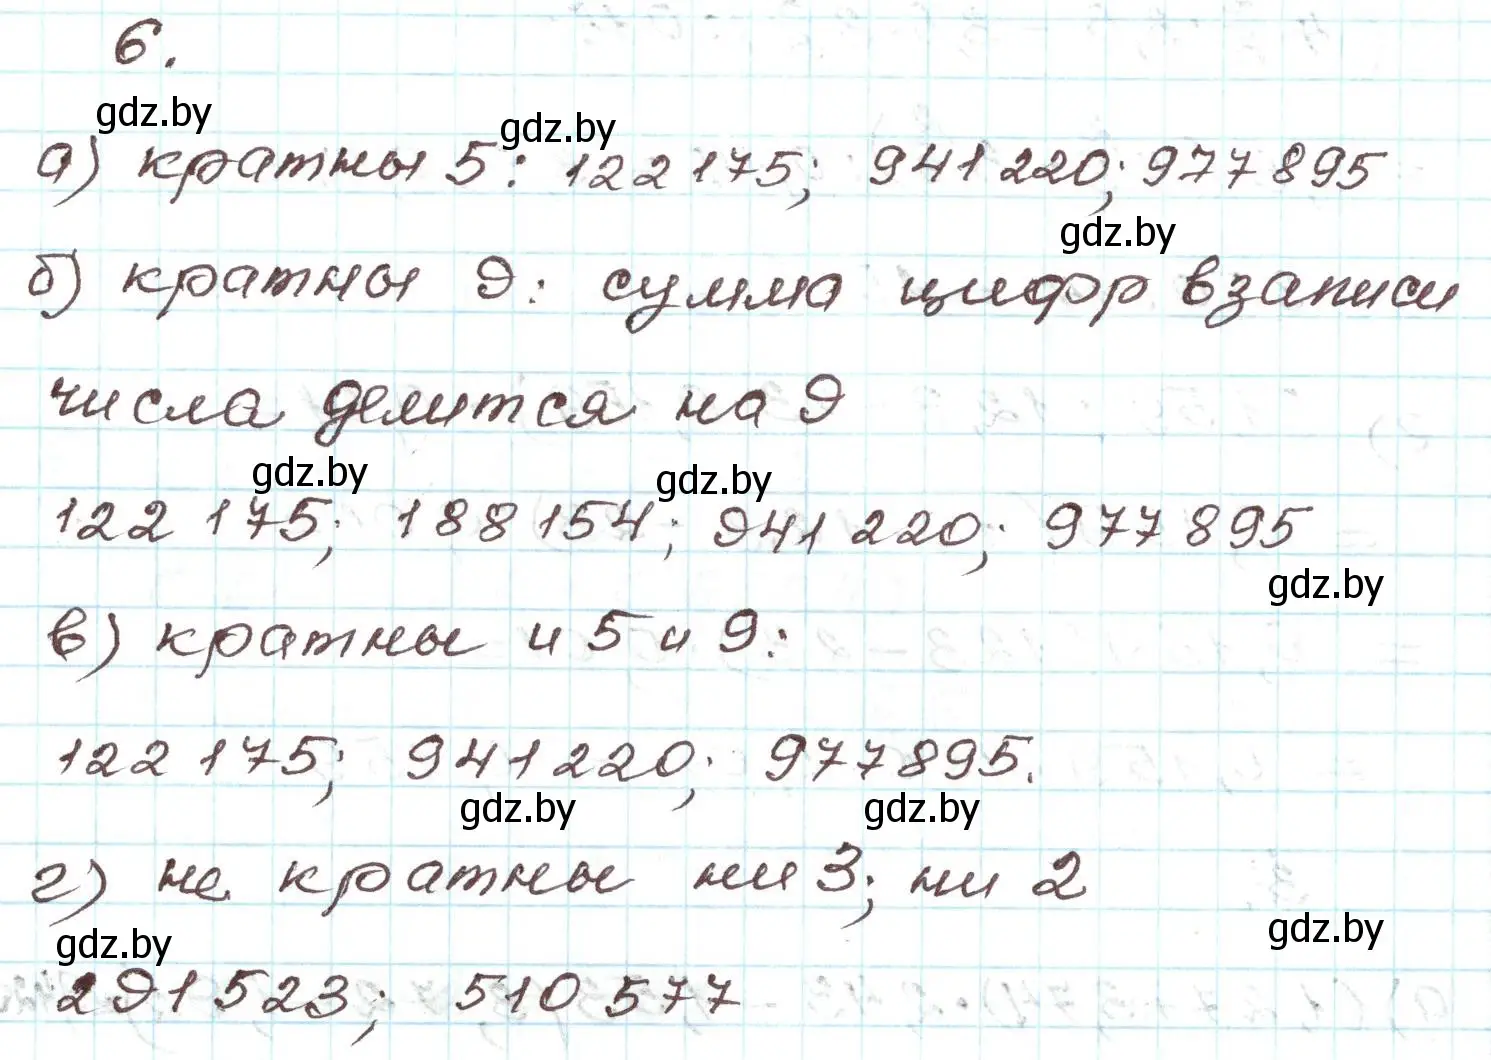 6.
gdz.by
gdz.by
а) кратны 5: 122 175; 941 220; 977 895
gdz.by
б) кратны 9: сумма цифр в записи
числа делится на 9
gdz.by
gdz.by
122 175; 188 154; 941 220; 977 895
gdz.by
в) кратны и 5 и 9:
122 175; 941 220; 977 895.
gdz.by
gdz.by
г) не кратны ни 3; ни 2
gdz.by
gdz.by
291 523; 510 577